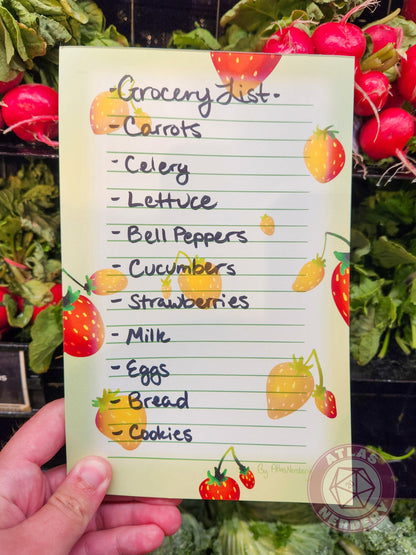 ·Grocery List·
- Carrots
- Celery
- Lettuce
- Bell Peppers
- Cucumbers
- Strawberries
- Milk
- Eggs
- Bread
- Cookies
By AtlasNerdery
ATLAS
NERDERY